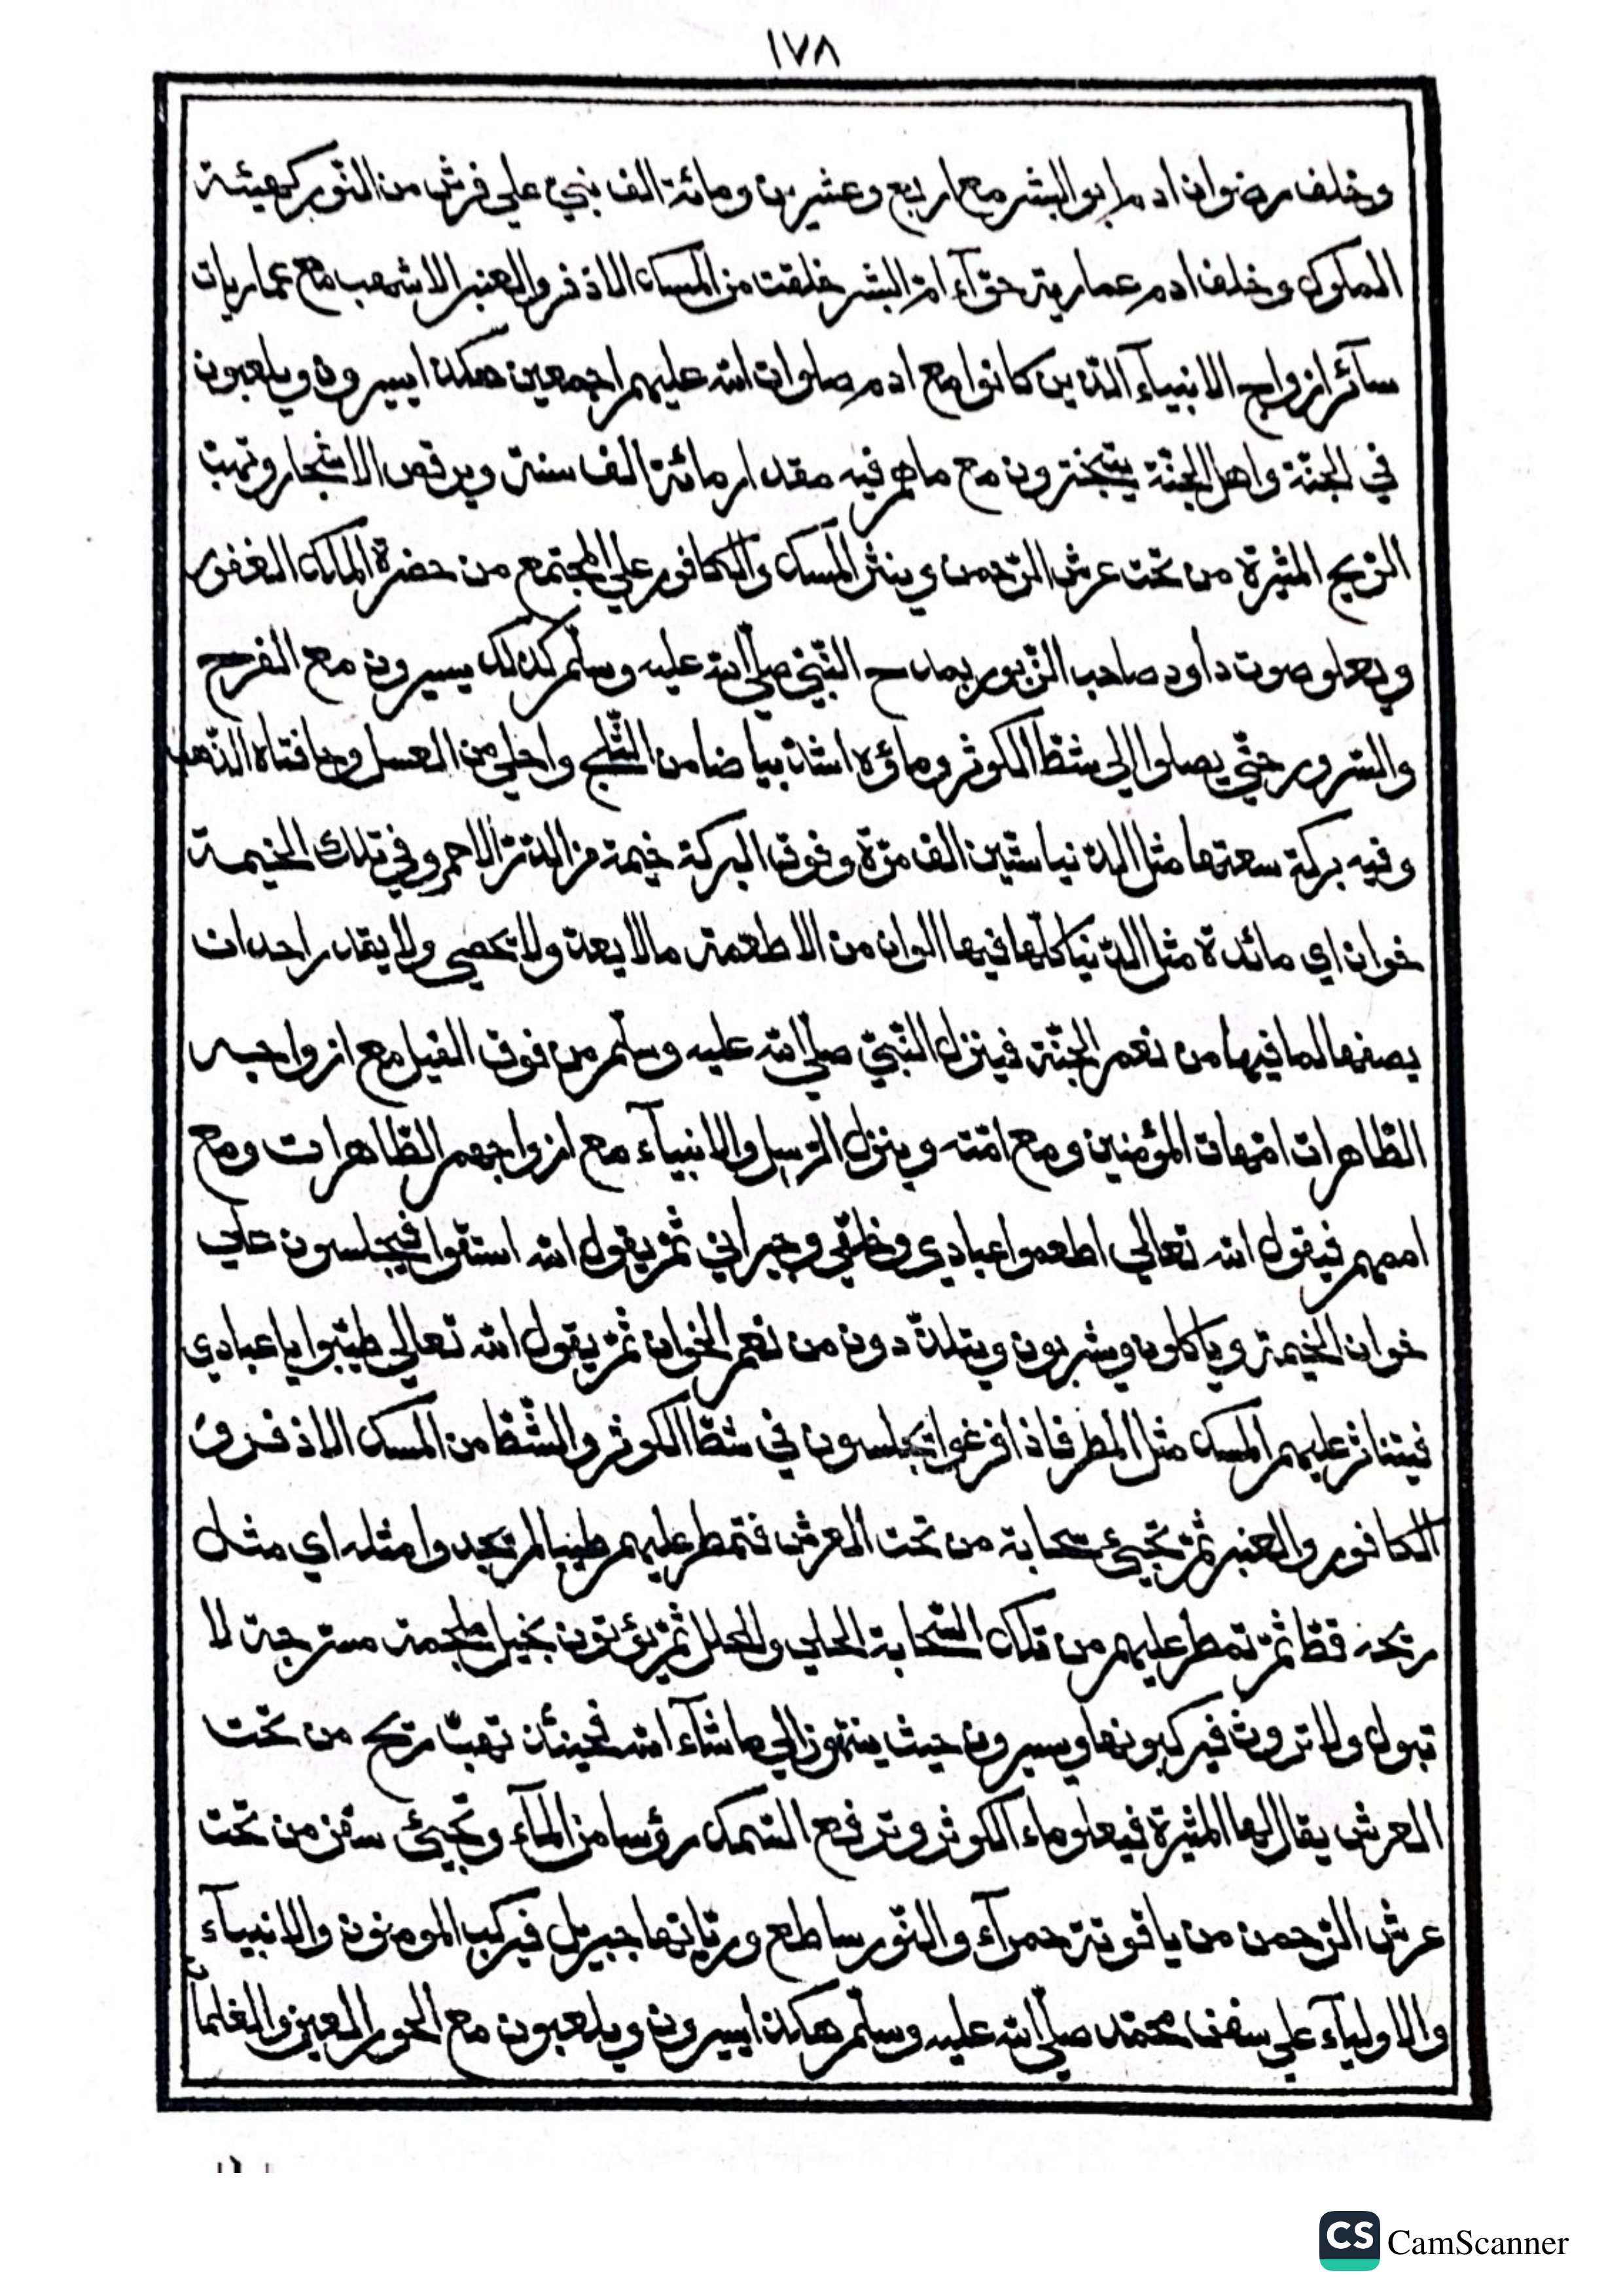 ١٧٨
وخلف رضوان ادم ابو البشر مع اربع وعشرين ومائة الف نبيّ علي فرش من النّور كهيئة
الملوك وخلف ادم عمارية حوّآء امّ البشر خلقت من المسك الاذفر والعنبر الاشهب مع عماريات
سآئر ازواج الانبيآء الّذين كانوا مع ادم صلوات الله عليهم اجمعين هكذا يسيرون ويلعبون
في الجنّة واهل الجنّة يتبخترون مع ماهم فيه مقدار مائة الف سنة ويرقص الاشجار وتهبّ
الرّيح المثيرة من تحت عرش الرّحمن وينثر المسك والكافور علي المجتمع من حضرة الملك الغفور
ويعلو صوت داود صاحب الزّبور بمدح النّبيّ صلّي الله عليه وسلّم كذلك يسيرون مع الفرح
والسّرور حتّي يصلوا الي شطّ الكوثر وماؤه اشدّ بياضا من الثّلج واحلي من العسل وحافتاه الذّهب
وفيه بركة سعتها مثل الدّنيا ستّين الف مرّة وفوق البركة خيمة من الدّرّ الاحمر وفي تلك الخيمة
خوان اي مائدة مثل الدّنيا كلّها فيها الوان من الاطعمة مالا يعدّ ولا تحصي ولا يقدر احد ان
يصفها لما فيها من نعم الجنّة فينزل النّبيّ صلّي الله عليه وسلّم من فوق الفيل مع ازواجه
الطّاهرات امّهات المؤمنين ومع امّته وينزل الرّسل والانبيآء مع ازواجهم الطّاهرات ومع
اممهم فيقول الله تعالي اطعموا عبادي وخلقي وجيراني ثمّ يقول الله استقوا فيجلسون علي
خوان الخيمة وياكلون ويشربون ويتلذّدون من نعم الخوان ثمّ يقول الله تعالي طيّبوا يا عبادي
فيتناثر عليهم المسك مثل المطر فاذا فرغوا يجلسون في شطّ الكوثر والشّطّ من المسك الاذفر و
الكافور والعنبر ثمّ تجيئ سحابة من تحت العرش فتمطر عليهم طيبا لم تجدوا مثله اي مثل
ريحه قطّ ثمّ تمطر عليهم من تلك السّحابة الحلي والحلل ثمّ يؤتون بخيل ملجمة مسترجة لا
تبول ولا تروث فيركبونها ويسيرون حيث ينتهون الي ما شآء الله فحينئذ تهبّ ريح من تحت
العرش يقال لها المثيرة فيعلو ماء الكوثر وترفع السّمك رؤسا من المآء وتجيئ سفن من تحت
عرش الرّحمن من ياقوتة حمرآء والنّور ساطع وربّانها جبريل فيركب المومنون والانبيآء
والاوليآء علي سفن محمّد صلّي الله عليه وسلّم هكذا يسيرون ويلعبون مع الحور العين والغلمان
CS CamScanner